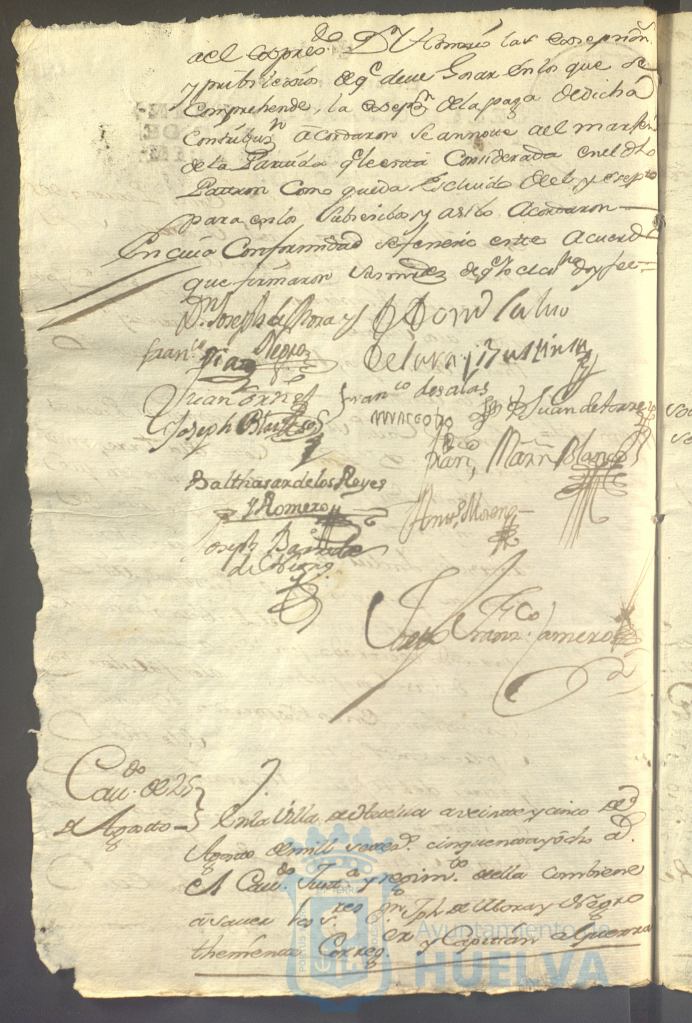 del expres.do Dn Romero las exsepsion.s
y pribilexios de q.e deve Gosar en los que se
Comprehende, la esepn. de la paga de dicha
Contribus.n acordaron se annote al marjen
de la Partida q.e le esta Considerada en el dho
Patron Como queda Escluido del, y esepto
para en lo Subsesibo y asi lo Acordaron
En cuia Conformidad se fenecio este Acuerdo
que firmaron sus mrds. de q.e Yo el es.no doy fee
Dn. Joseph de Mora y
Negro
Dn Dom.o Calvo
de Lara y
Fran.co Diaz
Juan
Fran.co de Salas
moscoso
Juan de torres
Joseph
Fran.co Marn. Blanco
Balthasar de los Reyes
y Romero
Ant.o Moreno
Joseph
Fran.co Jamero
Cav.do de 25
d Agosto
En la Villa de Huelva a veinte y cinco de
Agosto de mill setec.s cinquenta y ocho a.s
El Cav.do Just.a y regim.to della combiene
a saver los s.res Dn. Jph de Mora y Negro
theniente Correg.or y Capitan a Guerra
Ayuntamiento de
HUELVA